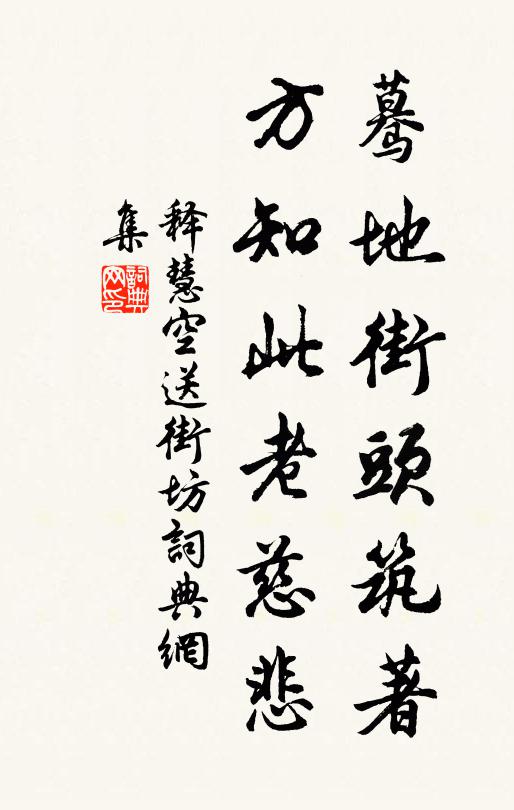 驀地街頭筑著
方知此老慈悲
释慧空送街坊詞典網
集
詞典
网印